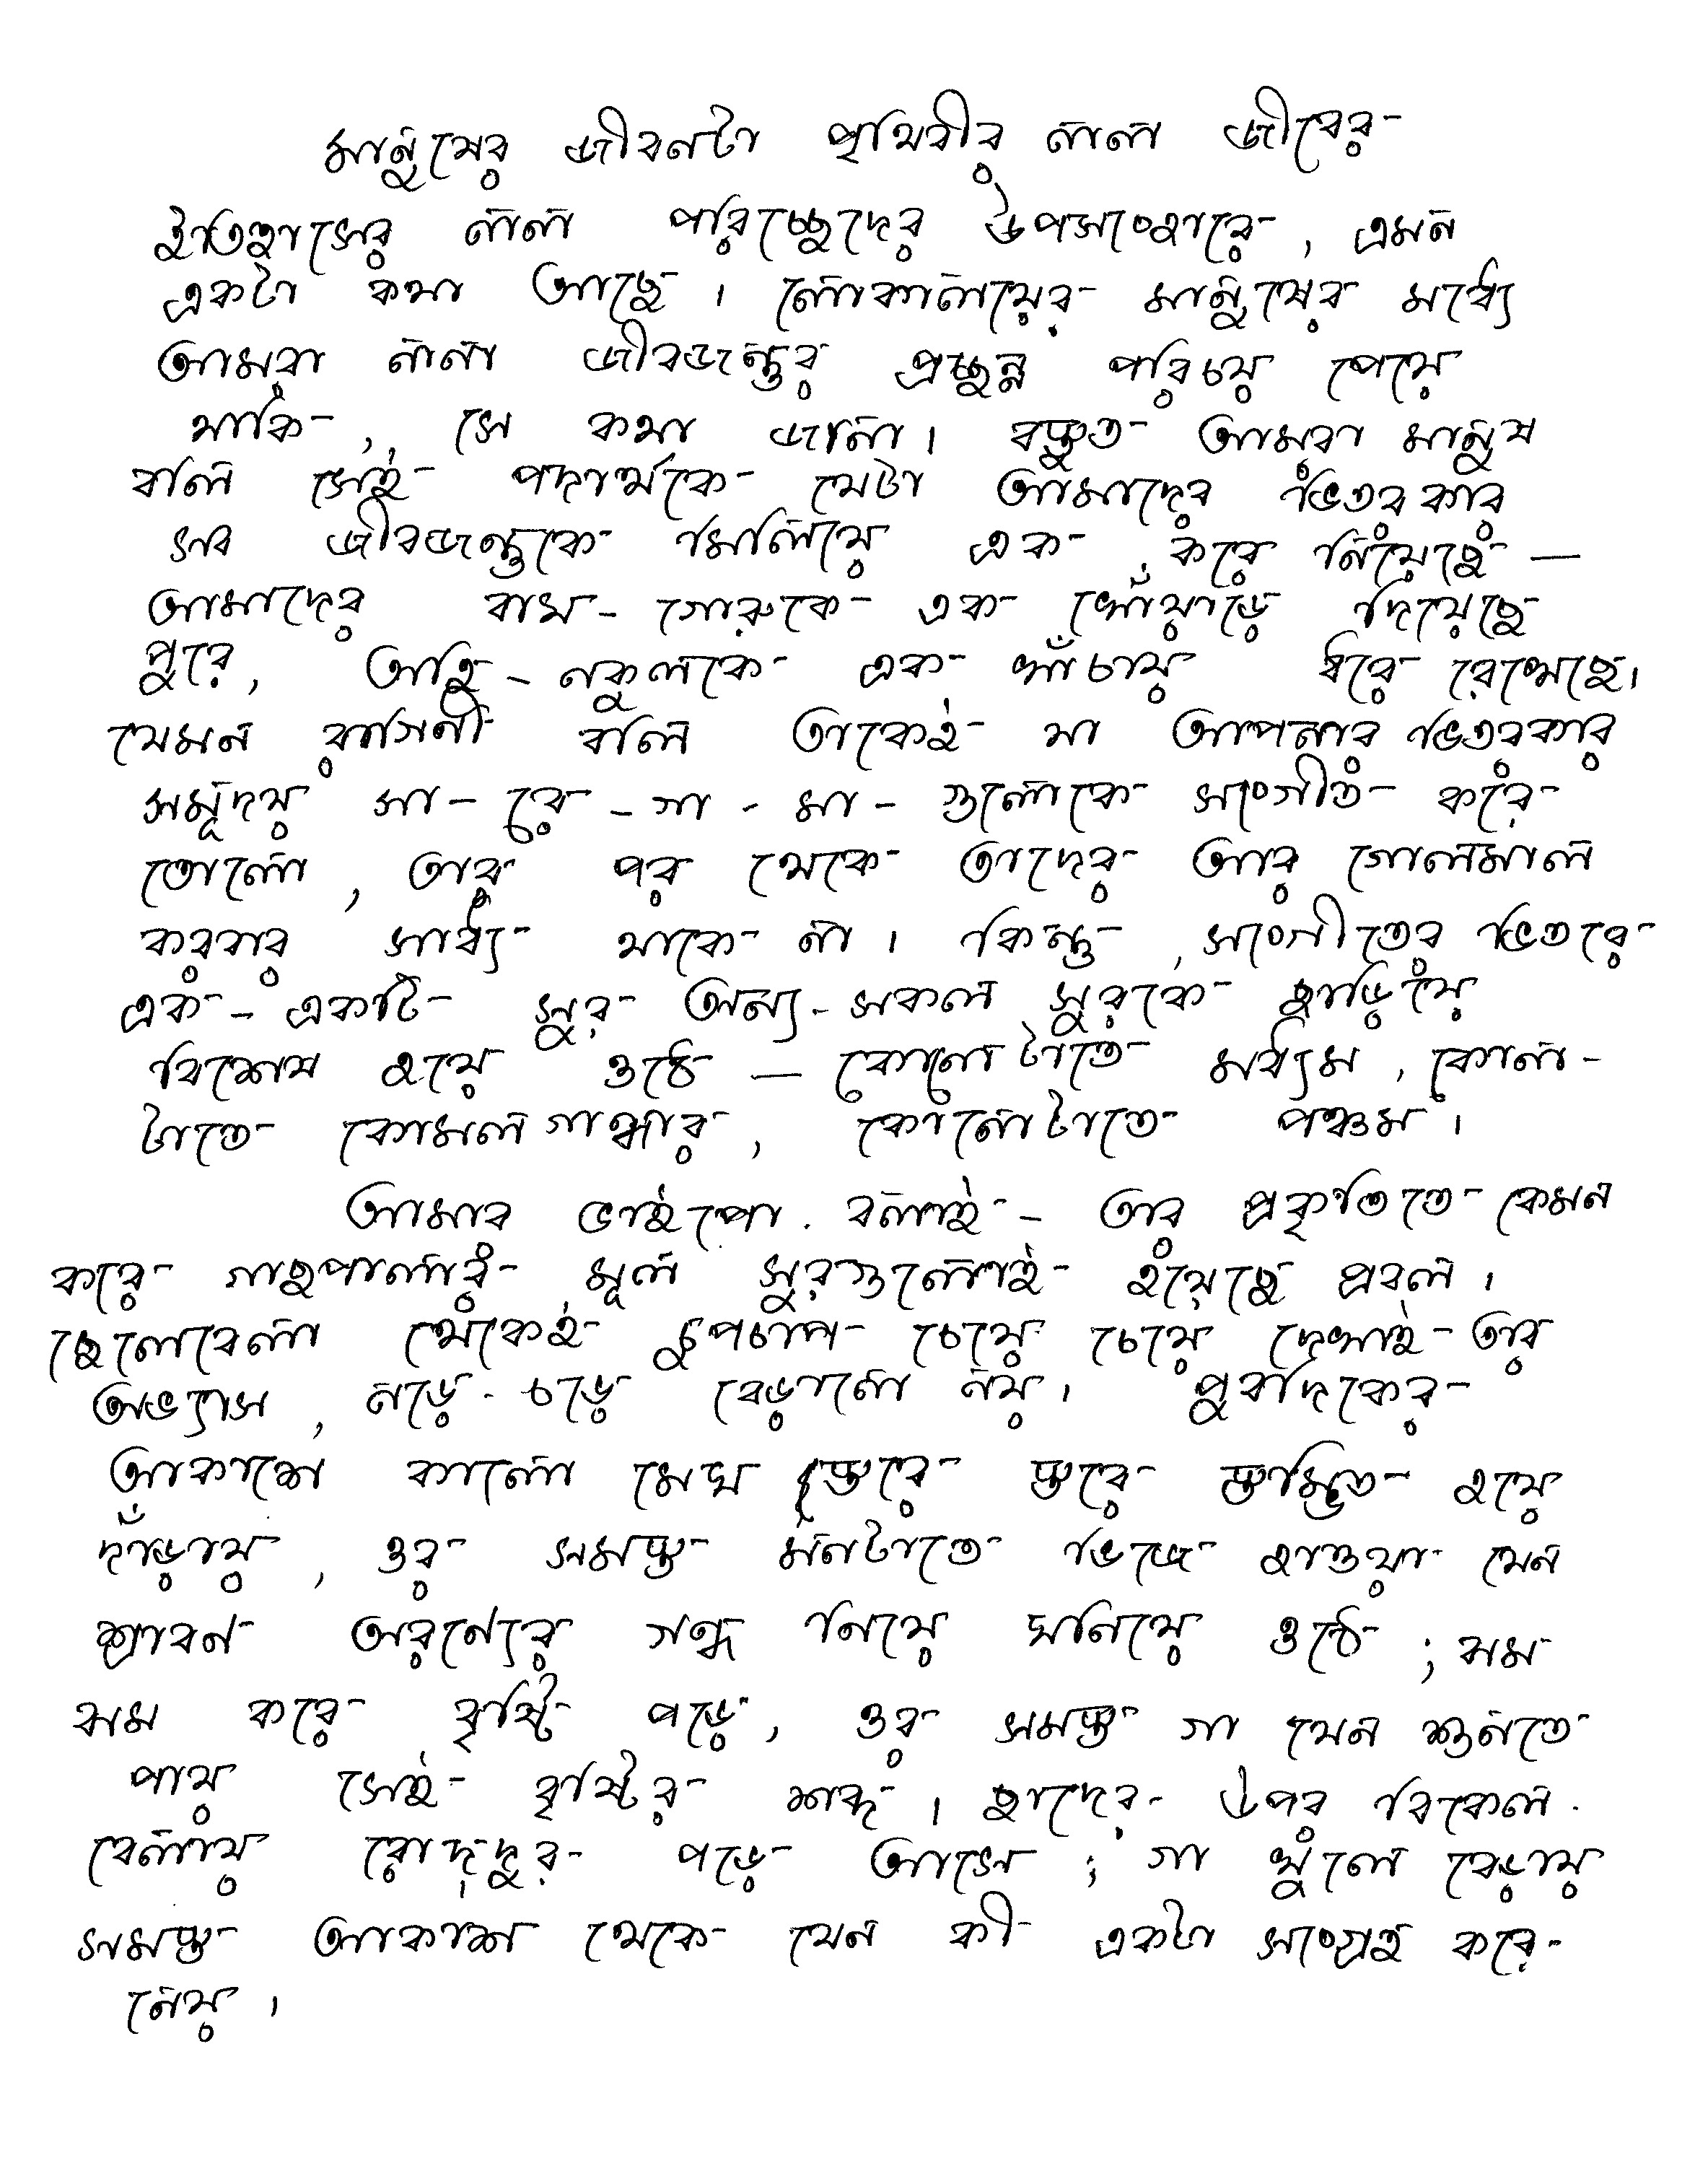 মানুষের জীবনটা পৃথিবীর নানা জীবের
ইতিহাসের নানা পরিচ্ছেদের উপসংহারে, এমন
একটা কথা আছে। লোকালয়ের মানুষের মধ্যে
আমরা নানা জীবজন্তুর প্রচ্ছন্ন পরিচয় পেয়ে
থাকি, সে কথা জানা। বস্তুত আমরা মানুষ
বলি সেই পদার্থকে যেটা আমাদের ভিতরকার
সব জীবজন্তুকে মিলিয়ে এক করে নিয়েছে —
আমাদের বাঘ-গোরুকে এক খোঁয়াড়ে দিয়েছে
পুরে, অহি-নকুলকে এক খাঁচায় ধরে রেখেছে।
যেমন রাগিনী বলি তাকেই যা আপনার ভিতরকার
সমুদয় সা-রে-গা-মা-গুলোকে সংগীত করে
তোলে, তার পর থেকে তাদের আর গোলমাল
করবার সাধ্য থাকে না। কিন্তু, সংগীতের ভিতরে
এক-একটি সুর অন্য-সকল সুরকে ছাড়িয়ে
বিশেষ হয়ে ওঠে — কোনোটাতে মধ্যম, কোনা-
টাতে কোমলগান্ধার, কোনোটাতে পঞ্চম।
আমার ভাইপো বলাই - তার প্রকৃতিতে কেমন
করে গাছপালার মূল সুরগুলোই হয়েছে প্রবল।
ছেলেবেলা থেকেই চুপচাপ চেয়ে চেয়ে দেখাই তার
অভ্যাস, নড়ে-চড়ে বেড়ানো নয়। পুবদিকের
আকাশে কালো মেঘ স্তরে স্তরে স্তম্ভিত হয়ে
দাঁড়ায়, ওর সমস্ত মনটাতে ভিজে হাওয়া যেন
শ্রাবণ অরণ্যের গন্ধ নিয়ে ঘনিয়ে ওঠে; ঝম
ঝম করে বৃষ্টি পড়ে, ওর সমস্ত গা যেন শুনতে
পায় সেই বৃষ্টির শব্দ। ছাদের উপর বিকেল-
বেলায় রোদ্‌দুর পড়ে আসে; গা খুলে বেড়ায়
সমস্ত আকাশ থেকে যেন কী একটা সংগ্রহ করে
নেয়।